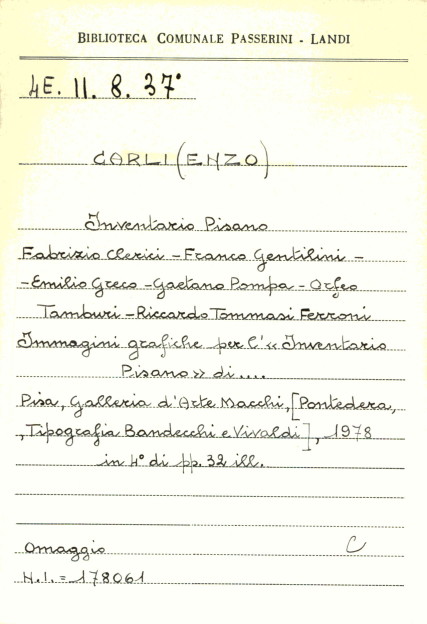 BIBLIOTECA COMUNALE PASSERINI - LANDI
4E. II. 8. 37°
CARLI (ENZO)
Inventario Pisano
Fabrizio Clerici - Franco Gentilini -
- Emilio Greco - Gaetano Pompa - Orfeo
Tamburi - Riccardo Tommasi Ferroni
Immagini grafiche per l'« Inventario
Pisano » di ....
Pisa, Galleria d'Arte Macchi, [Pontedera,
, Tipografia Bandecchi e Vivaldi], 1978
in 4° di pp. 32 ill.
Omaggio C
N.I. = 178061